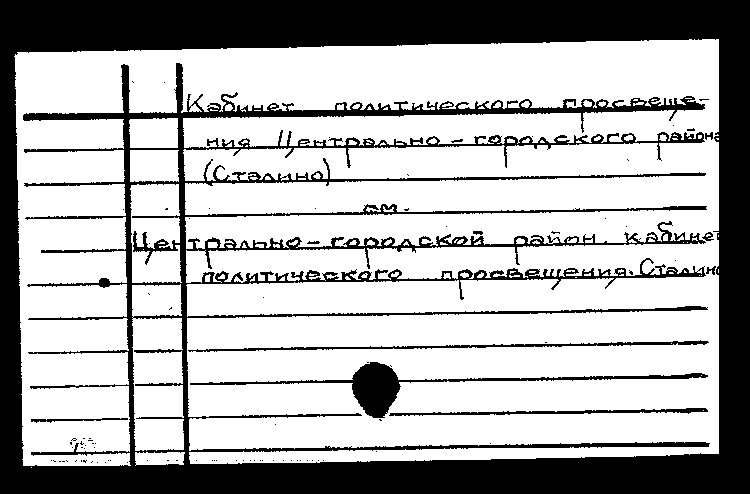 Кабинет политического просвеще-
ния Центрально-городского района
(Сталино)
см.
Центрально-городской район. кабинет
политического просвещения. Сталино